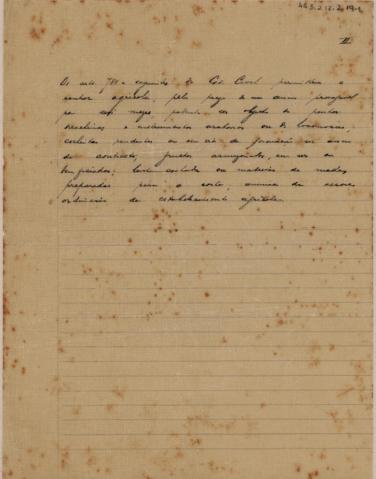 III
Os arts. 781 e seguintes do Cod. Civil permittem o
penhor agricola, pelo prazo de um anno, prorogavel
por seis mezes, podendo ser objecto de penhor
machinas e instrumentos aratorios ou de locomoção;
colheitas pendentes ou em via de formação no anno
do contracto; fructos armazenados, em ser ou
beneficiados; lenha cortada ou madeiras de mattas
preparadas para o corte; animaes de serviço
ordinario de estabelecimento agricola.